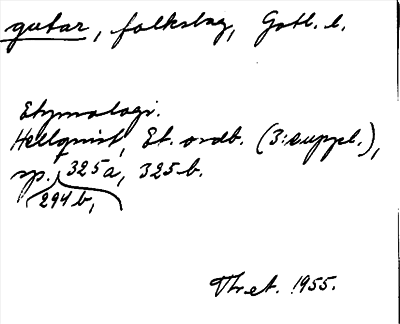 gutar, folkslag, Gotl. l.
Etymologi.
Hellquist, Et. ordb. (3: suppl.),
sp. 325a, 325b.
294b,
1955.